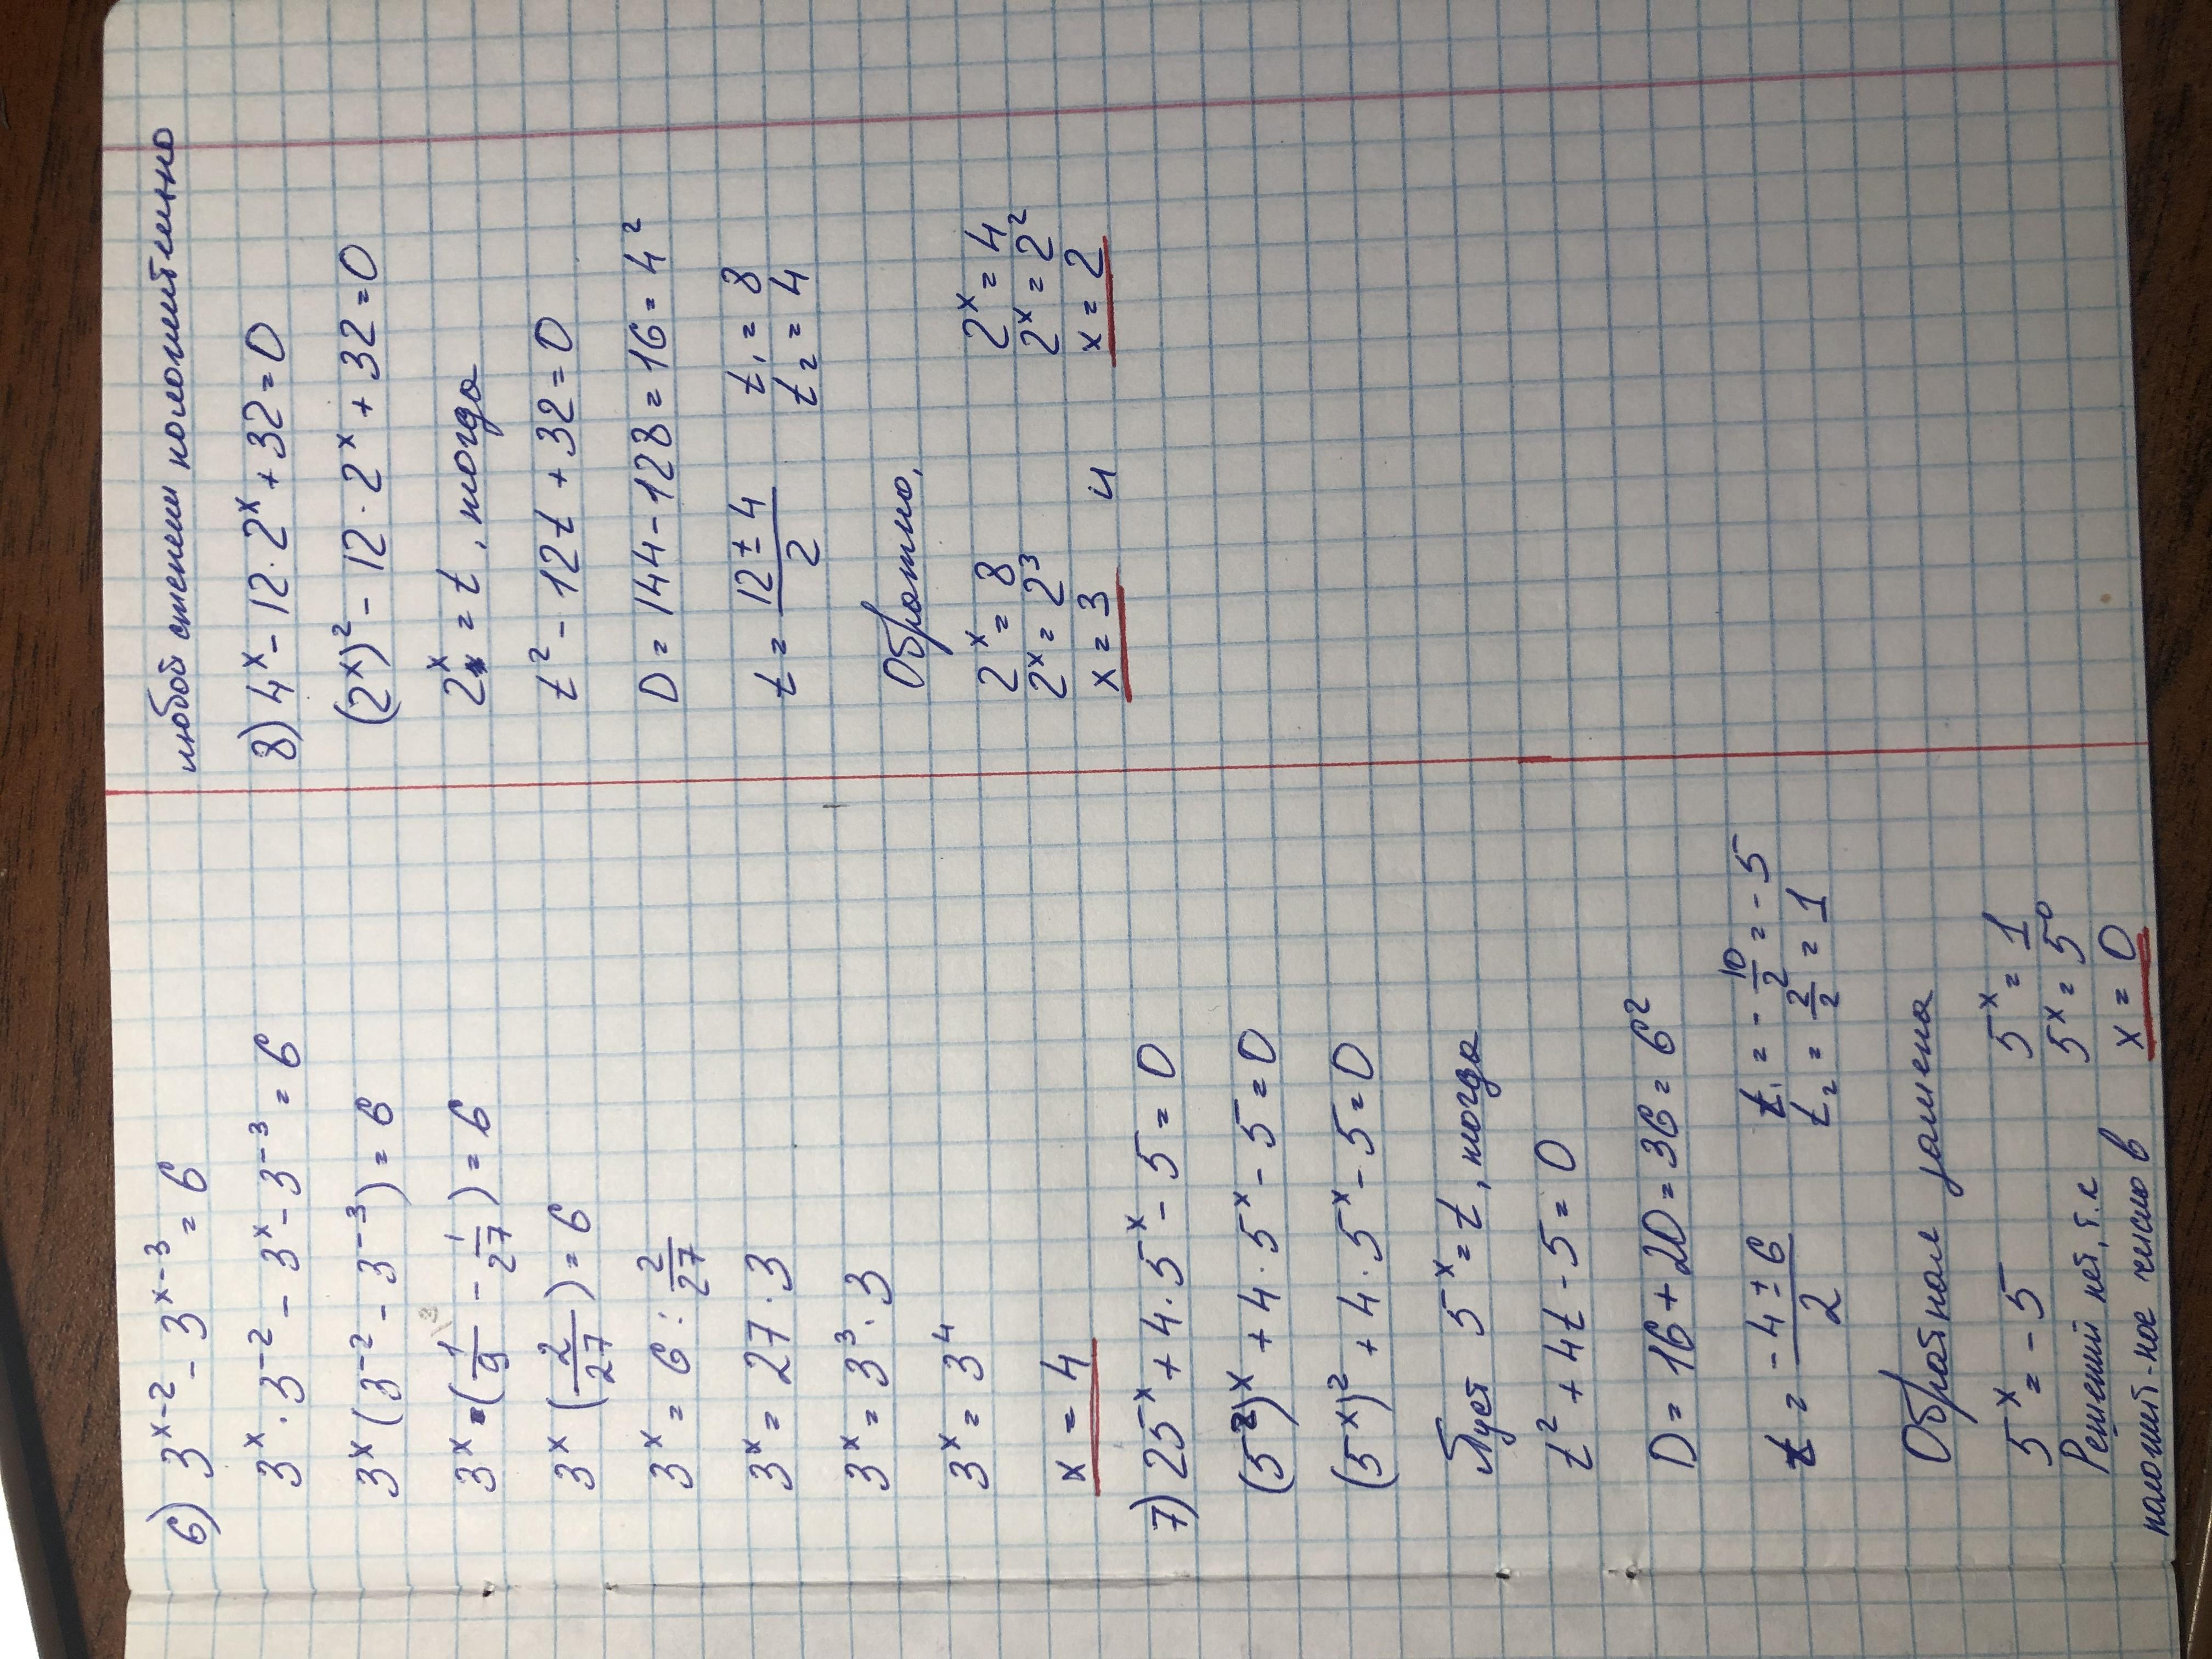 6) 3^(x-2) - 3^(x-3) = 6
3^x · 3^(-2) - 3^x - 3^(-3) = 6
3^x (3^(-2) - 3^(-3)) = 6
3^x = (1/9 - 1/27) = 6
3^x (2/27) = 6
3^x = 6 : 2/27
3^x = 27 · 3
3^x = 3^3 · 3
3^x = 3^4
x = 4
7) 25^x + 4 · 5^x - 5 = 0
(5^2)^x + 4 · 5^x - 5 = 0
(5^x)^2 + 4 · 5^x - 5 = 0
Пуст 5^x = t, тогда
t^2 + 4t - 5 = 0
D = 16 + 20 = 36 = 6^2
t = (-4 ± 6)/2 t₁ = -10/2 = -5
t₂ = 2/2 = 1
Обратная замена
5^x = -5 5^x = 1
Решений нет, т.к 5^x = 5^0
полошит-ное число в x = 0
любой степени положительно
8) 4^x - 12 · 2^x + 32 = 0
(2^x)^2 - 12 · 2^x + 32 = 0
2^x = t, тогда
t^2 - 12t + 32 = 0
D = 144 - 128 = 16 = 4^2
t = (12 ± 4)/2 t₁ = 8
t₂ = 4
Обратно,
2^x = 8 2^x = 4
2^x = 2^3 2^x = 2^2
x = 3 и x = 2